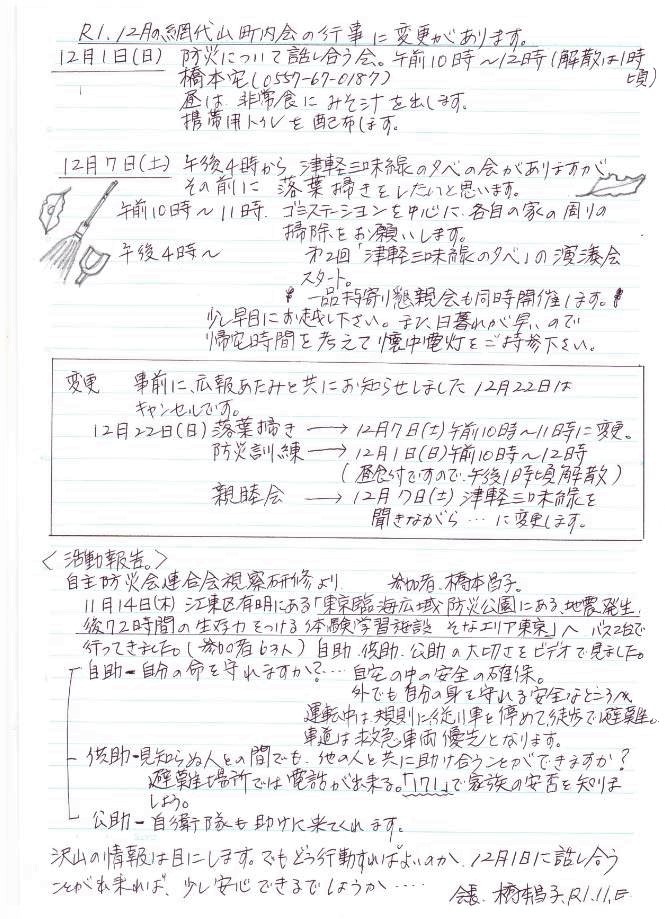 R1.12月の網代山町内会の行事に変更があります。
12月1日(日) 防災について話し合う会。午前10時〜12時(解散は1時頃)
橋本宅(0557-67-0187)
昼は、非常食にみそ汁を出します。
携帯用トイレを配布します。
12月7日(土) 午後4時から津軽三味線の夕べの会がありますが
その前に落葉掃きをしたいと思います。
午前10時〜11時. ゴミステーションを中心に、各自の家の周りの
掃除をお願いします。
午後4時〜 第2回「津軽三味線の夕べ」の演奏会
スタート。
一品持寄り懇親会も同時開催します。
少し早目にお越し下さい。また、日暮れが早いので
帰宅時間を考えて懐中電灯をご持参下さい。
変更 事前に、広報あたみと共にお知らせしました12月22日は
キャンセルです。
12月22日(日)落葉掃き → 12月7日(土)午前10時〜11時に変更。
防災訓練 → 12月1日(日)午前10時〜12時
(昼食付ですので、午後1時頃解散)
親睦会 → 12月7日(土)津軽三味線を
聞きながら…に変更します。
〈活動報告。〉
自主防災会連合会視察研修より 参加者.橋本昌子。
11月14日(木) 江東区有明にある「東京臨海広域防災公園にある、地震発生
後72時間の生存力をつける体験学習施設 そなエリア東京」へ バス2台で
行ってきました。(参加者63人) 自助、俟助、公助の大切さをビデオで見ました。
自助-自分の命を守れますか?… 自宅の中の安全の確保。
外でも自分の身を守れる安全なところへ
運転中は規則に従い車を停めて、徒歩で避難。
車道は救急車両優先となります。
俟助-見知らぬ人との間でも、他の人と共に助け合うことができますか?
避難場所では電話が出来る。「171」で家族の安否を知りま
しょう。
公助-自衛隊も助けに来てくれます。
沢山の情報は目にします。でもどう行動すればよいのか、12月1日に話し合う
ことが出来れば、少し安心できるでしょうか….
会長 橋本昌子.R1.11.